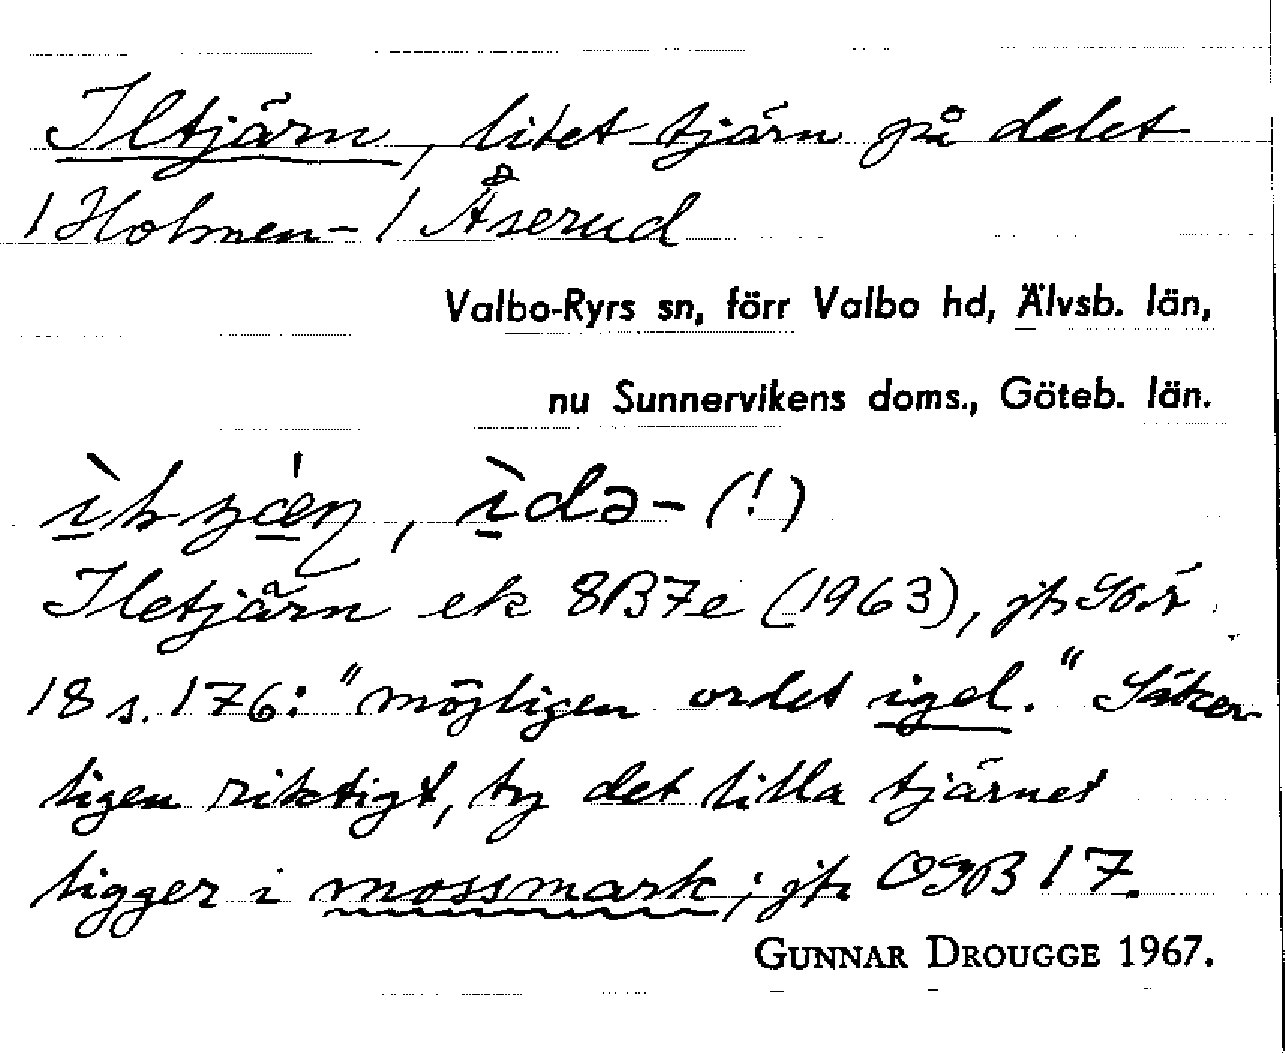 Iltjärn, litet tjärn på delet
1 Holmen - 1 Åserud
Valbo-Ryrs sn, förr Valbo hd, Älvsb. län,
nu Sunnervikens doms., Göteb. län.
, ìdə- (!)
Iletjärn ek 8B7e (1963), jfr SOÄ
18 s. 176: "möjligen ordet igel." Säker
ligen riktigt, ty det lilla tjärnet
ligger i mossmark; jfr OGB 17.
GUNNAR DROUGGE 1967.